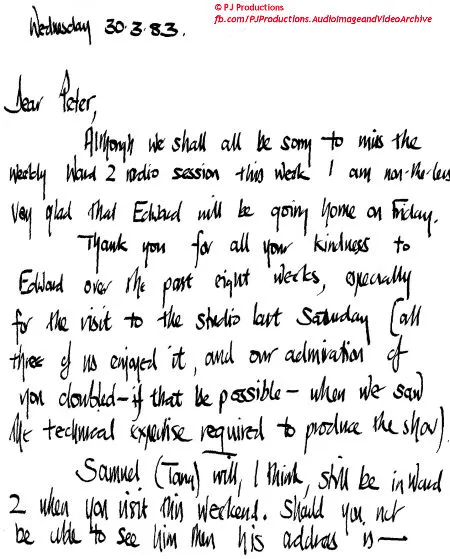 © PJ Productions
fb.com/PJProductions.AudioImageandVideoArchive
Wednesday 30.3.83.
Dear Peter,
Although we shall all be sorry to miss the
weekly Ward 2 radio session this week I am non-the-less
very glad that Edward will be going home on Friday.
Thank you for all your kindness to
Edward over the past eight weeks, especially
for the visit to the studio last Saturday (all
three of us enjoyed it, and our admiration of
you doubled – if that be possible – when we saw
the technical expertise required to produce the show).
Samuel (Tang) will, I think, still be in Ward
2 when you visit this weekend. Should you not
be able to see him then his address is —